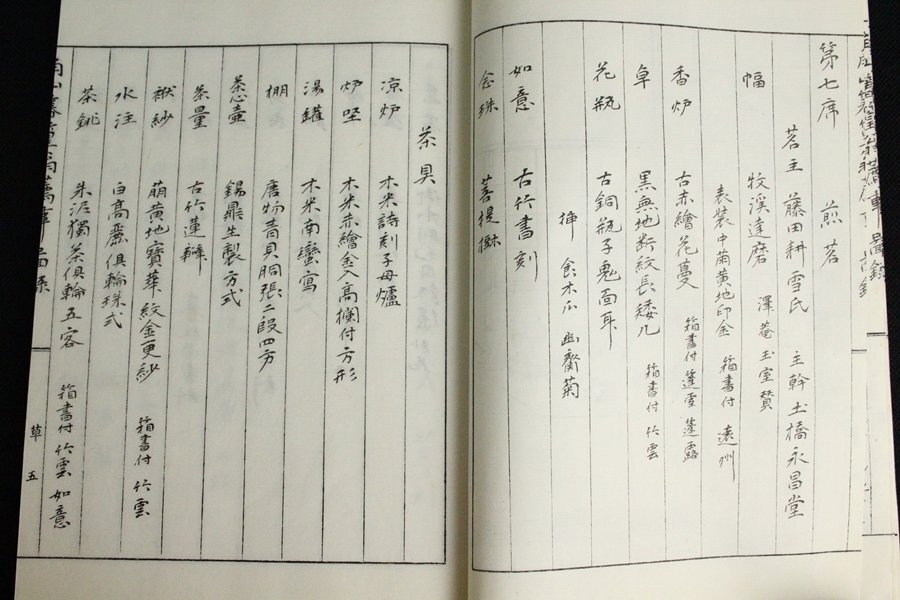 第七席 煎茗
茗主 藤田耕雪氏 主幹 土橋永昌堂
幅 牧溪達磨 澤菴 玉室賛
表装中萠黄地印金 箱書付 遠州
香炉 古赤繪花蔓 箱書付 蓬雪 蓬露
卓 黒無地断紋長矮几 箱書付 竹雲
花瓶 古銅瓶子鬼面耳
挿 食木瓜 幽齋菊
如意 古竹書刻
念珠 菩提樹
茶具
凉炉 木米詩刻子母爐
炉坐 木米赤繪金入高欄付方形
湯罐 木米南蠻寫
棚 唐物青貝胴張二段四方
茶心壷 錫鼎生製方式
茶量 古竹蓮瓣
袱紗 萠黄地寶華紋金更紗 箱書付 竹雲
水注 白高麗俱輪珠式
茶銚 朱泥獨茶俱輪五客 箱書付 竹雲 如意
草 五